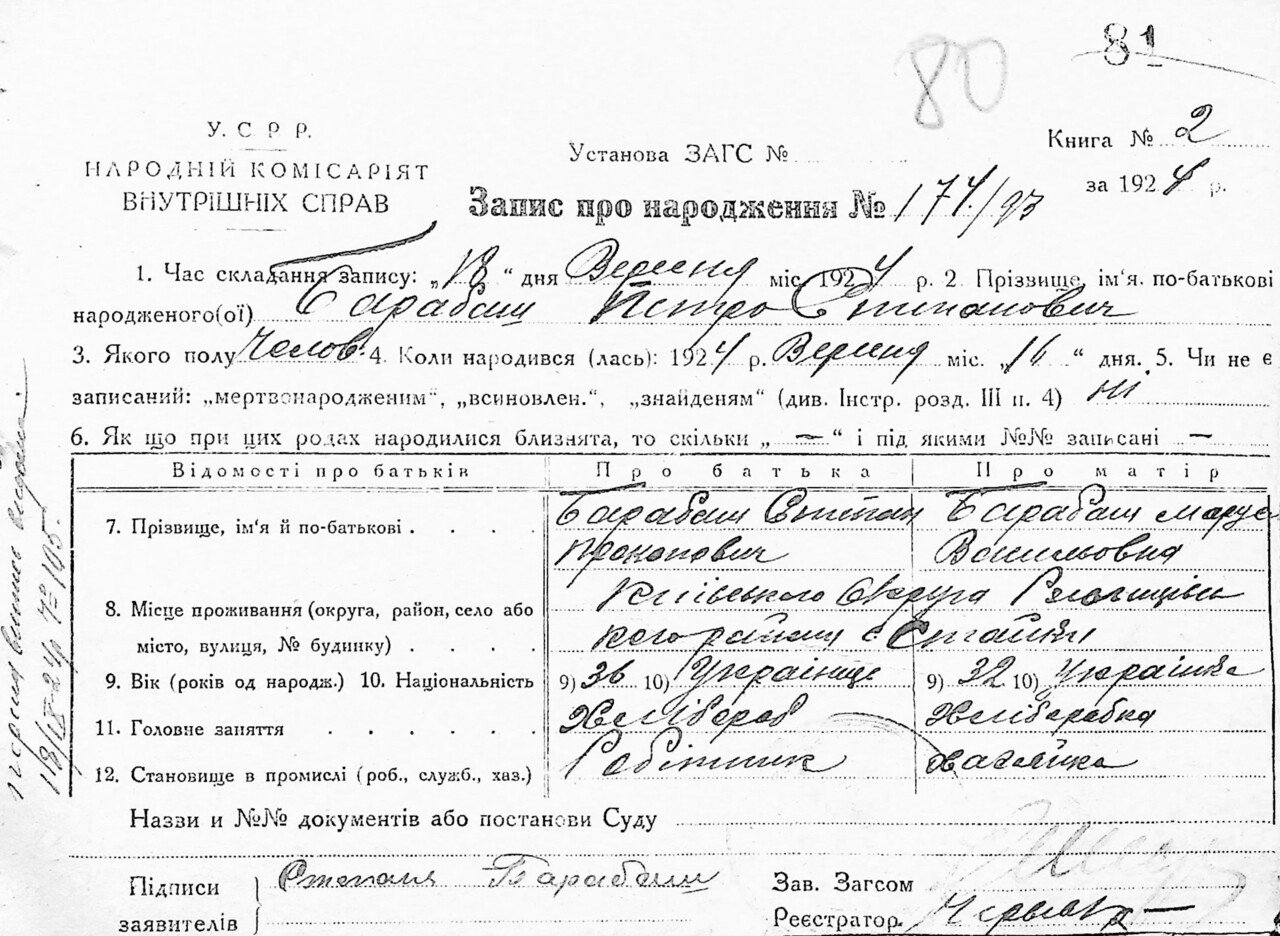 81
80
У. С. Р. Р.
НАРОДНІЙ КОМІСАРІЯТ
ВНУТРІШНІХ СПРАВ
Установа ЗАГС №
Книга № 2
за 1924 р.
Запис про народження № 174/93
1. Час складання запису: „18“ дня Вересня міс. 1924 р. 2. Прізвище, ім'я, по-батькові
народженого(ої) Барабаш Петро Степанович
3. Якого полу Челов. 4. Коли народився (лась): 1924 р. Вересня міс. „16“ дня. 5. Чи не є
записаний: „мертвонародженим“, „всиновлен.“, „знайденям“ (див. Інстр. розд. III п. 4) ні
6. Як що при цих родах народилися близнята, то скільки „ — “ і під якими №№ записані —
Відомості про батьків Про батька Про матір
7. Прізвище, ім'я й по-батькові . . . . Барабаш Степан Прокопович Барабаш Маруся Васильовна
8. Місце проживання (округа, район, село або Київського Округа
місто, вулиця, № будинку) . . . . кого району с Стайки
9. Вік (років од народж.) 10. Національність 9) 36 10) Українець 9) 32 10) Українка
11. Головне заняття . . . . . . Хлібороб Хліборобка
12. Становище в промислі (роб., служб., хаз.) Робітник Хазяйка
Назви и №№ документів або постанови Суду
Підписи
заявителів
Степан Барабаш
Зав. Загсом
Реєстратор.
118/18-24 № 105.